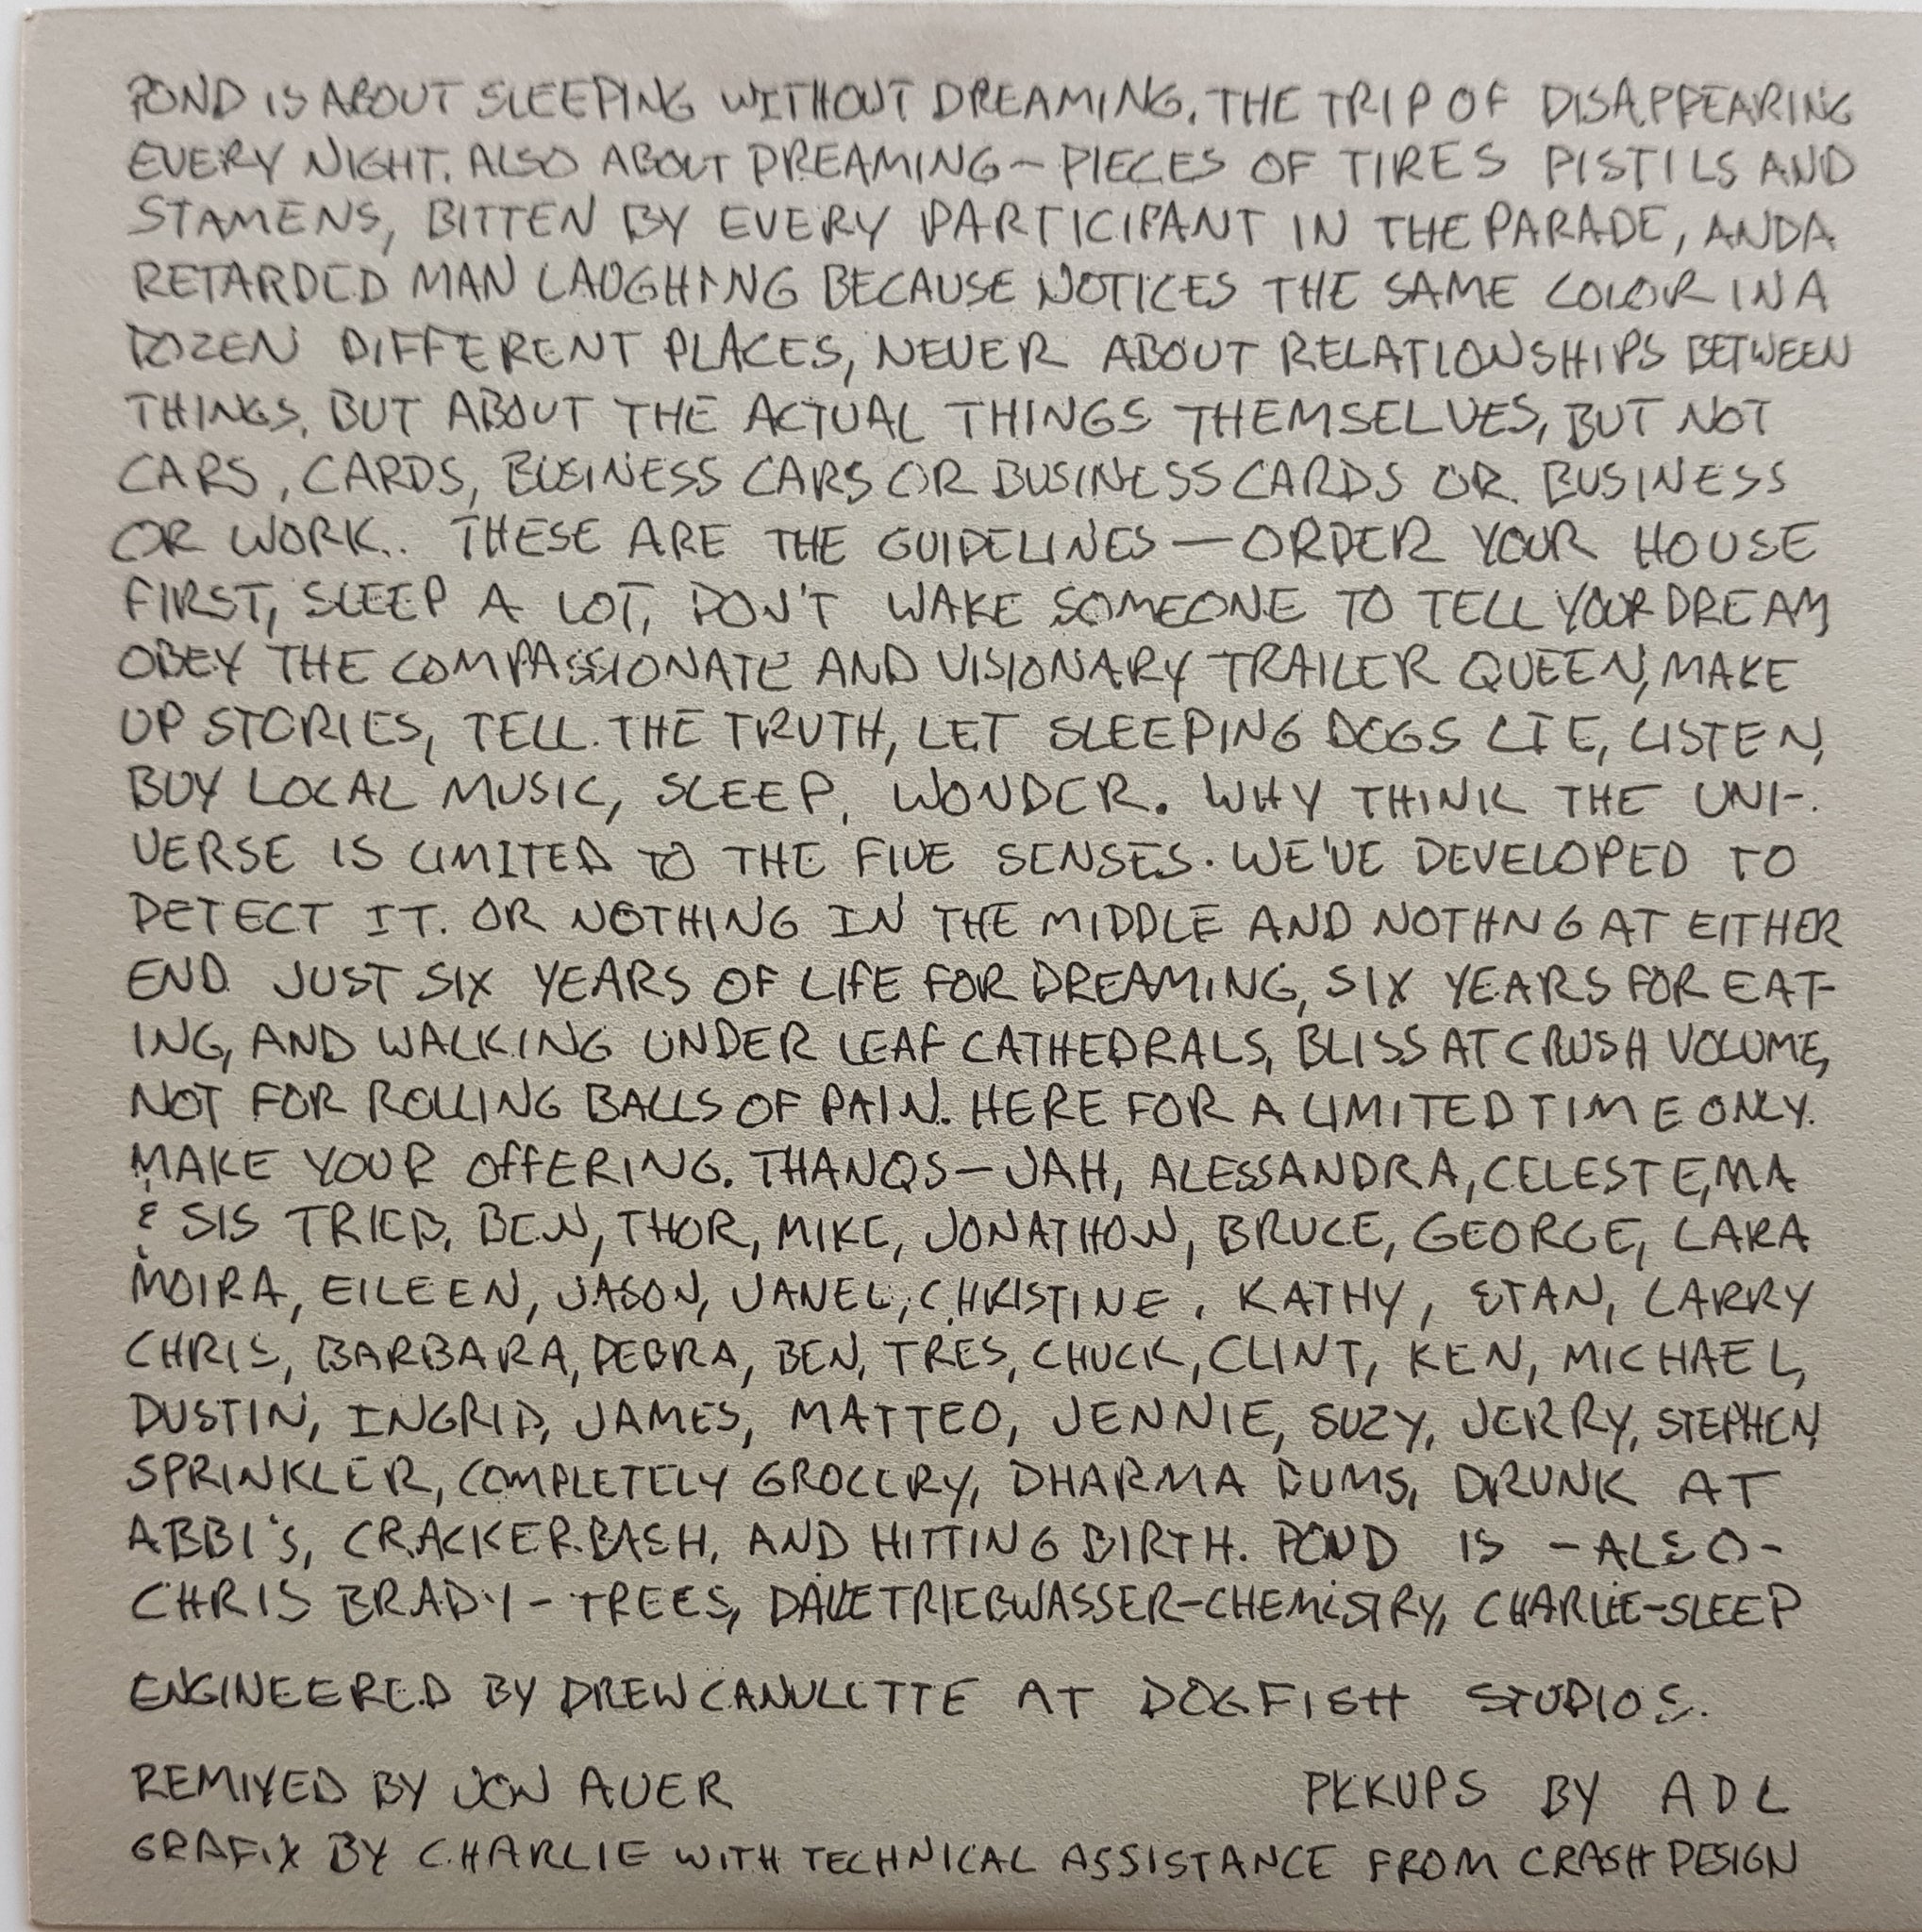 POND IS ABOUT SLEEPING WITHOUT DREAMING. THE TRIP OF DISAPPEARING
EVERY NIGHT. ALSO ABOUT DREAMING - PIECES OF TIRES PISTILS AND
STAMENS, BITTEN BY EVERY PARTICIPANT IN THE PARADE, AND A
RETARDED MAN LAUGHING BECAUSE NOTICES THE SAME COLOR IN A
DOZEN DIFFERENT PLACES, NEVER ABOUT RELATIONSHIPS BETWEEN
THINGS, BUT ABOUT THE ACTUAL THINGS THEMSELVES, BUT NOT
CARS, CARDS, BUSINESS CARS OR BUSINESS CARDS OR BUSINESS
OR WORK.. THESE ARE THE GUIDELINES — ORDER YOUR HOUSE
FIRST, SLEEP A LOT, DON'T WAKE SOMEONE TO TELL YOUR DREAM,
OBEY THE COMPASSIONATE AND VISIONARY TRAILER QUEEN, MAKE
UP STORIES, TELL THE TRUTH, LET SLEEPING DOGS LIE, LISTEN,
BUY LOCAL MUSIC, SLEEP, WONDER. WHY THINK THE UNI-
VERSE IS LIMITED TO THE FIVE SENSES. WE'VE DEVELOPED TO
DETECT IT. OR NOTHING IN THE MIDDLE AND NOTHNG AT EITHER
END. JUST SIX YEARS OF LIFE FOR DREAMING, SIX YEARS FOR EAT-
ING, AND WALKING UNDER LEAF CATHEDRALS, BLISS AT CRUSH VOLUME,
NOT FOR ROLLING BALLS OF PAIN. HERE FOR A LIMITED TIME ONLY.
MAKE YOUR OFFERING. THANQS — JAH, ALESSANDRA, CELESTE, MA
& SIS TRIEB, BEN, THOR, MIKE, JONATHON, BRUCE, GEORGE, LARA
MOIRA, EILEEN, JASON, JANEL, CHRISTINE, KATHY, ETAN, LARRY
CHRIS, BARBARA, DEBRA, BEN, TRES, CHUCK, CLINT, KEN, MICHAEL,
DUSTIN, INGRID, JAMES, MATTEO, JENNIE, SUZY, JERRY, STEPHEN,
SPRINKLER, COMPLETELY GROCERY, DHARMA BUMS, DRUNK AT
ABBI'S, CRACKERBASH, AND HITTING BIRTH. POND IS - ALSO -
CHRIS BRADY - TREES, DAVE TRIEBWASSER - CHEMISTRY, CHARLIE - SLEEP
ENGINEERED BY DREW CANULETTE AT DOGFISH STUDIOS.
REMIXED BY JON AUER PICKUPS BY ADL
GRAFIX BY CHARLIE WITH TECHNICAL ASSISTANCE FROM CRASH DESIGN